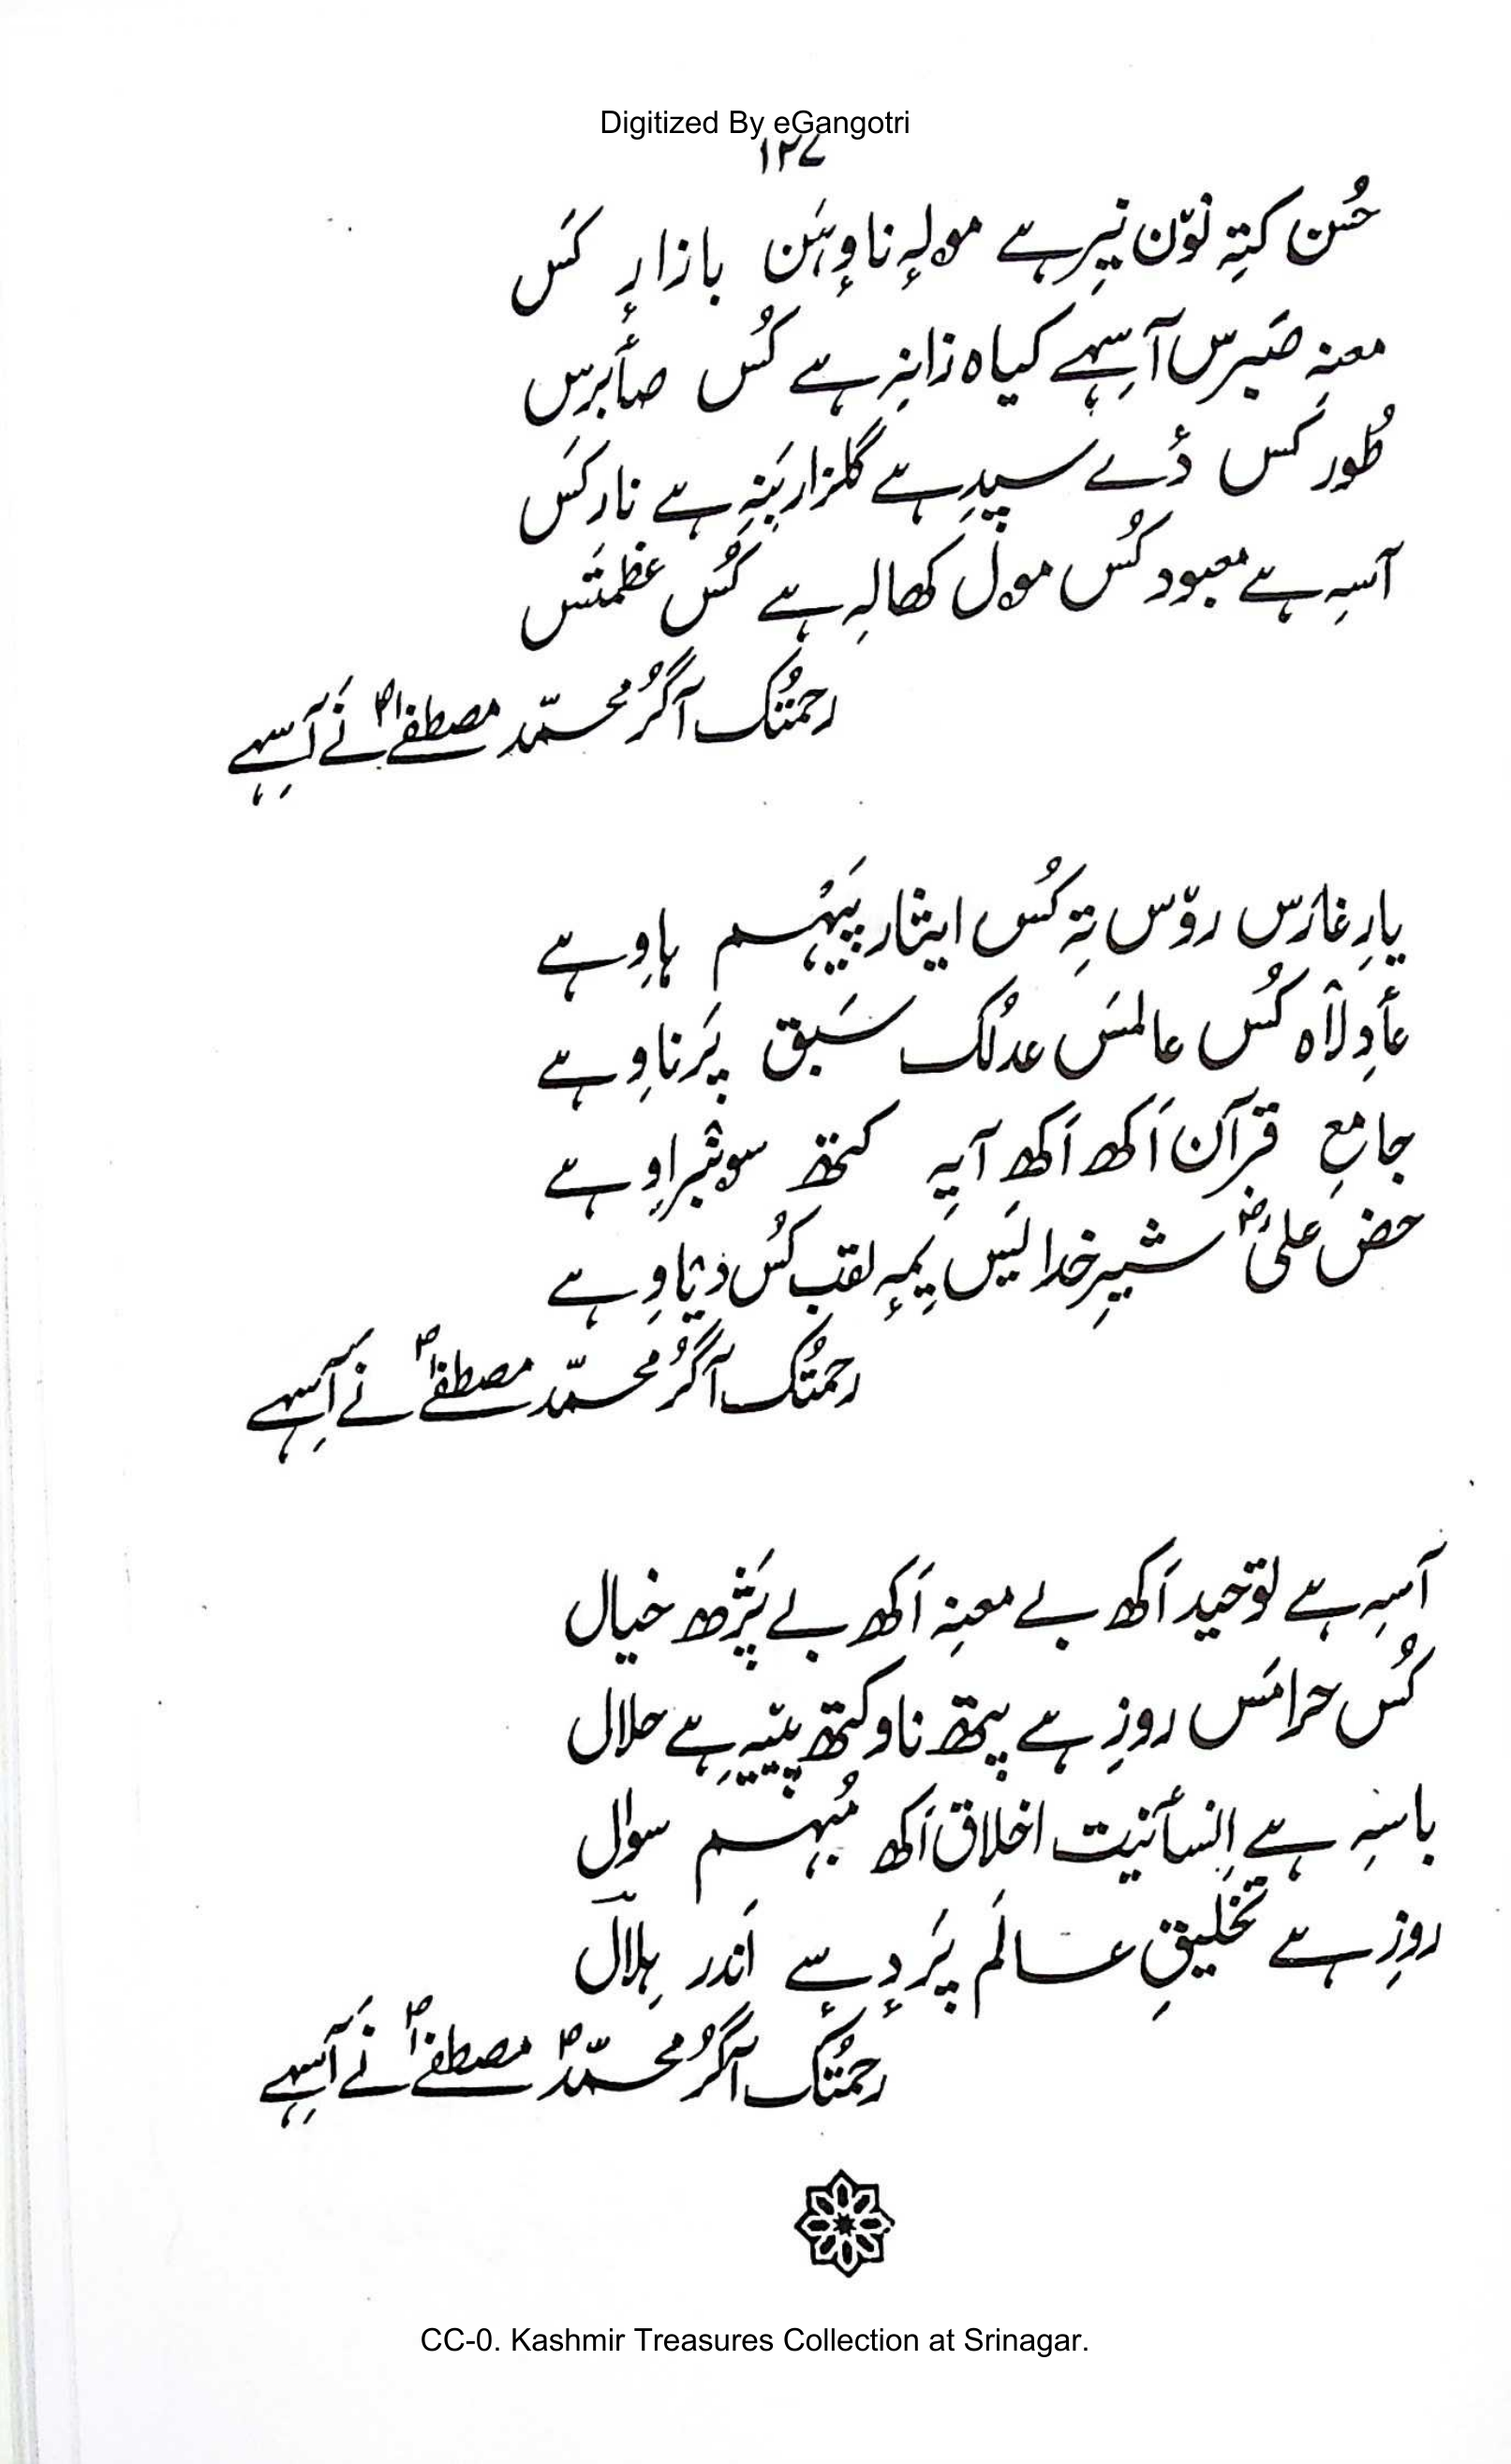 Digitized By eGangotri
۱۲۷
حُسن کتہِ نوٚن نیرِ ہے مولہٕ ناوِہَن بازارٕ کَس
معنہِ صَبرس آسِہے کیاہ زانہِ ہے کُس صأبرس
طُور کَس دٔے سپدِ ہے گلزار بَنہِ ہے نار کَس
آسہِ ہے معبود کُس مول کھالہِ ہے کُس عظمتَس
رحمتُک آگُر محمّد مصطفےٰؐ نَے آسِہے
یارِ غارَس روٚس تہِ کُس ایثار پَیہُم ہاوِہے
عأدِلاہ کُس عالمَس عدلُک سَبق پَرناوِہے
جامعِ قرآن اَکھ اَکھ آیہِ کتھ سونٛبراوِہے
حض علیؓ شیرِ خدا یَس یِمہٕ لقب کُس دیٛاوِہے
رحمتُک آگُر محمّد مصطفےٰؐ نَے آسِہے
آسہِ ہے توحید اَکھ بے معنہِ اَکھ بے پَژھ خیال
کُس حرامَس روزِ ہے پیتھ ناو کتھ پییہِ ہے حلال
باسہِ ہے اِنسأنیت اخلاق اَکھ مُبہم سوال
روزِ ہے تخلیقِ عالَم پَردِسٕے اَندر ہِلال
رحمتُک آگُر محمّدؐ مصطفےٰؐ نَے آسِہے
CC-0. Kashmir Treasures Collection at Srinagar.